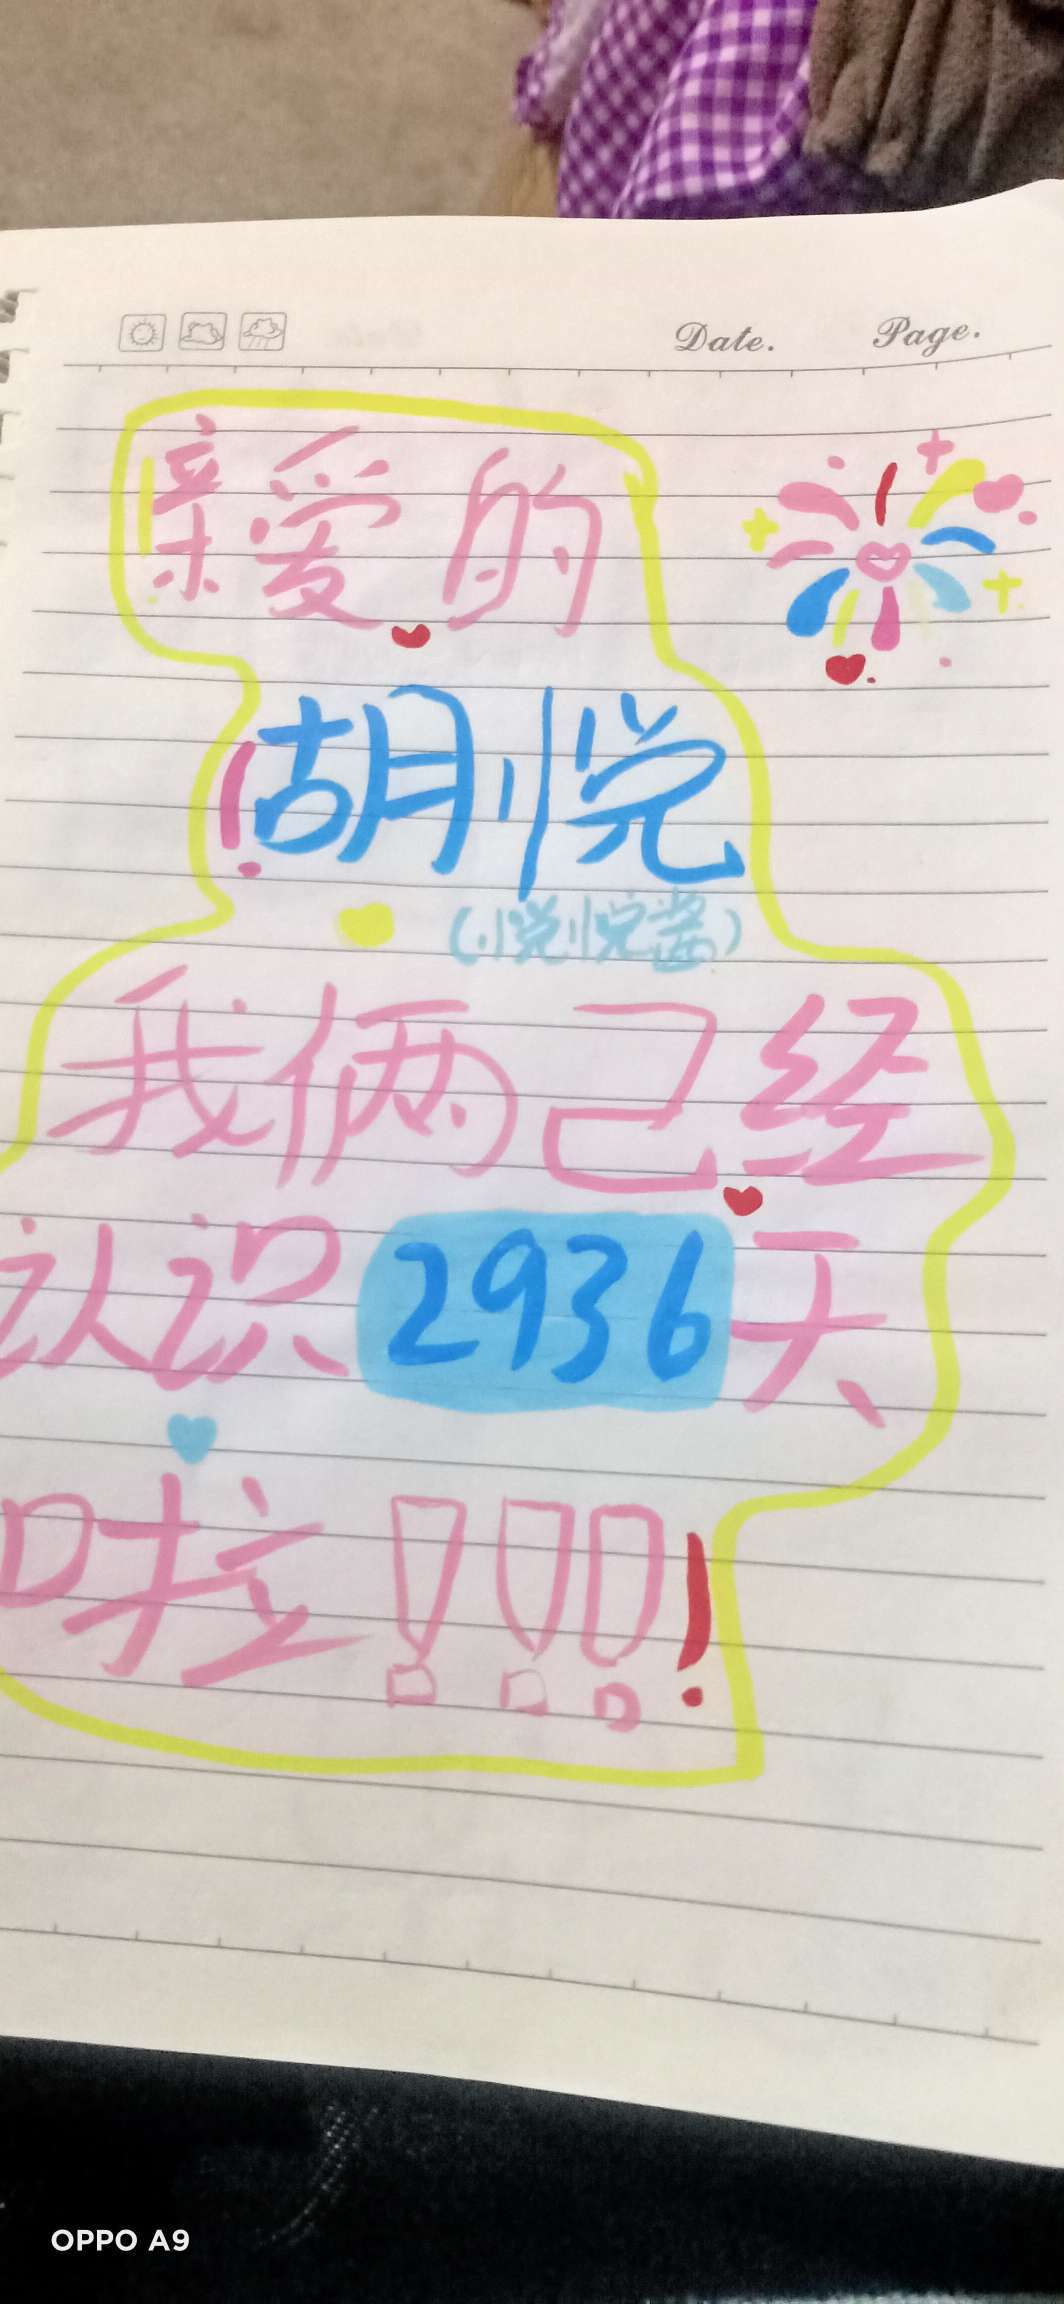 Date. Page.
亲爱的
!胡悦
(悦悦酱)
我俩已经
认识2936天
啦!!!!
OPPO A9